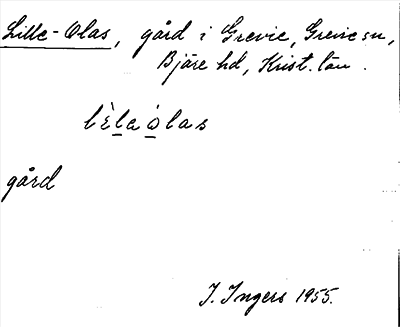 Lille-Olas, gård i Grevie, Grevie sn,
Bjäre hd, Krist. län.
lɛ̀la ólas
gård
I. Ingers 1955.